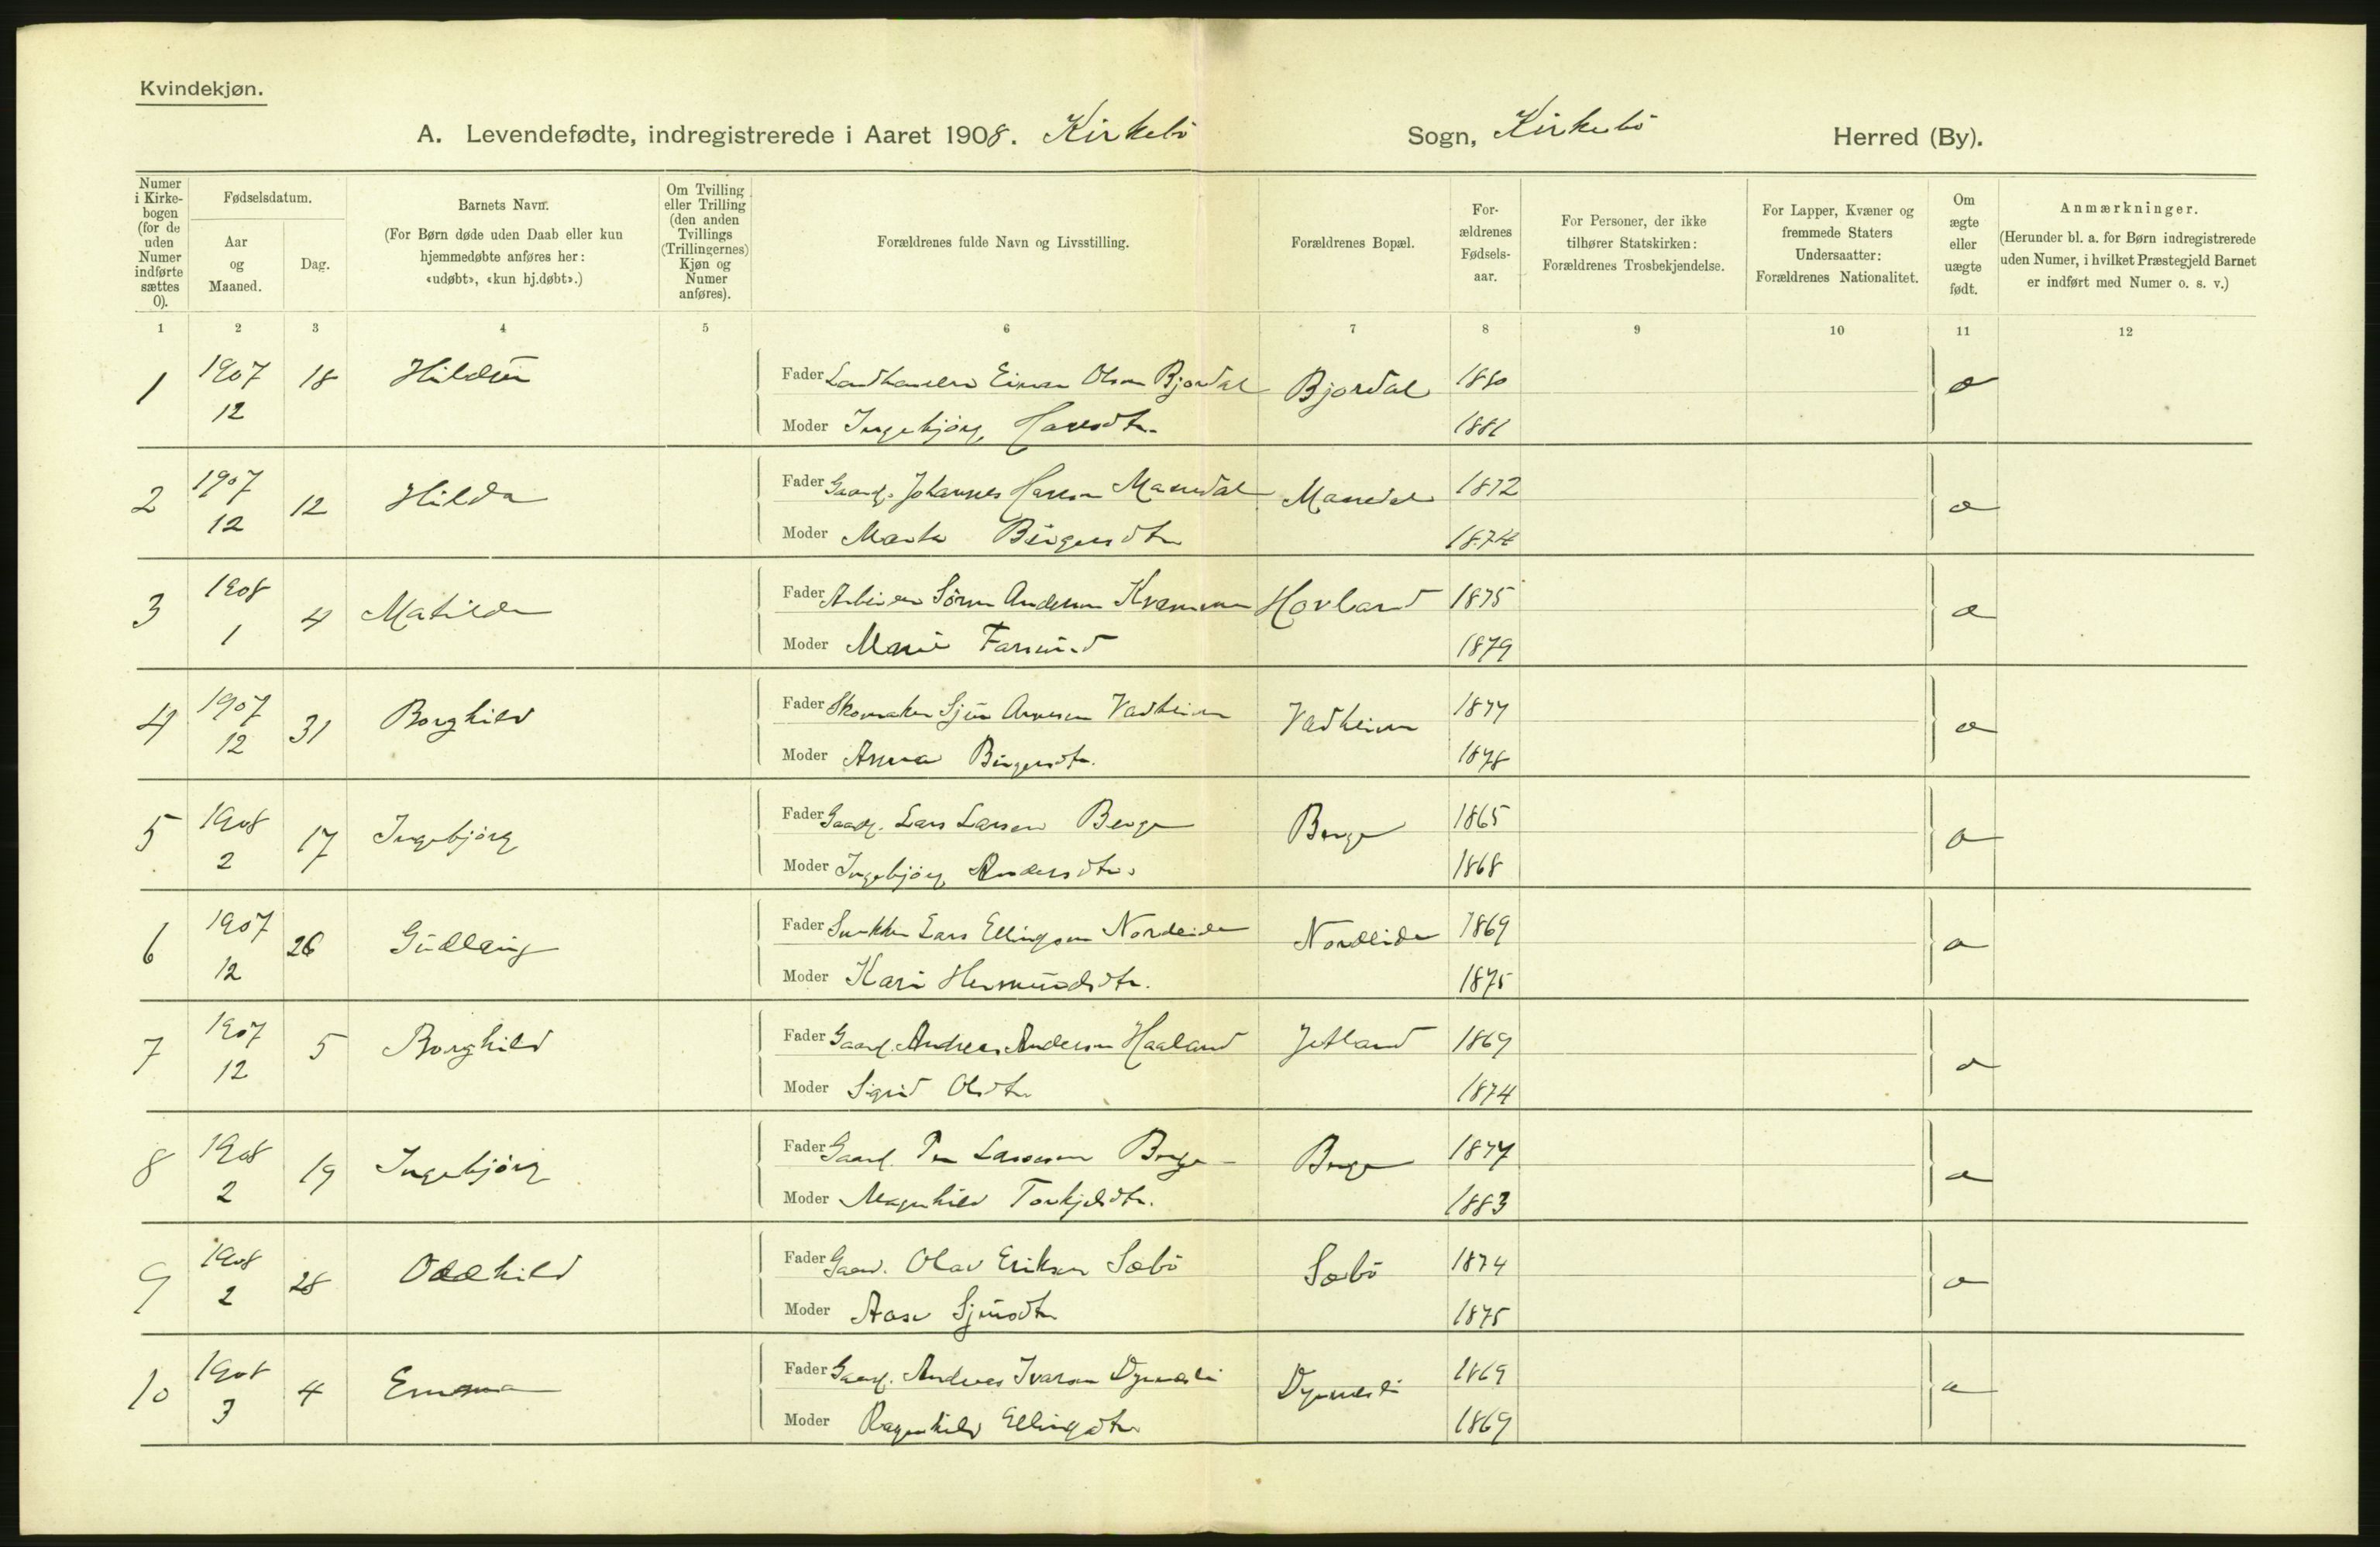 Kvindekjøn.
A. Levendefødte, indregistrerede i Aaret 1908. Kirkebö Sogn, Kirkebö Herred (By).
Numer i Kirkebogen (for de uden Numer indførte sættes 0).
Fødselsdatum.
Aar og Maaned.
Dag.
Barnets Navn.
(For Børn døde uden Daab eller kun hjemmedøbte anføres her: «udøbt», «kun hj.døbt».)
Om Tvilling eller Trilling (den anden Tvillings (Trillingernes) Kjøn og Numer anføres).
Forældrenes fulde Navn og Livsstilling.
Forældrenes Bopæl.
Forældrenes Fødselsaar.
For Personer, der ikke tilhører Statskirken: Forældrenes Trosbekjendelse.
For Lapper, Kvæner og fremmede Staters Undersaatter: Forældrenes Nationalitet.
Om ægte eller uægte født.
Anmærkninger.
(Herunder bl. a. for Børn indregistrerede uden Numer, i hvilket Præstegjeld Barnet er indført med Numer o. s. v.)
1 2 3 4 5 6 7 8 9 10 11 12
1 1907 12 18 Fader Einar Olsen Bjordal Bjordal 1880 æ
Moder Ingebjörg Hansdtr. 1881
2 1907 12 12 Hilda Fader Gaardf. Johannes Hansen Massedal 1872 æ
Moder Marta Birgersdtr 1874
3 1908 1 4 Matilda Fader Arbeider Sören Andersen Kvamme Hovland 1875 æ
Moder Marie 1879
4 1907 12 31 Borghild Fader Skomaker Sjur Vadheim Vadheim 1877 æ
Moder Anna Birgersdtr. 1878
5 1908 2 17 Ingebjörg Fader Gaardf. Lars Larsen Berge Berge 1865 æ
Moder Ingebjörg Andersdtr. 1868
6 1907 12 26 Gudlaug Fader Snekker Lars Ellingsen Nordeide Nordeide 1869 æ
Moder Kari Hermundsdtr. 1875
7 1907 12 5 Borghild Fader Gaardf. Andreas Andersen Haaland 1869 æ
Moder Sigrid Olsdtr 1874
8 1908 2 19 Ingebjörg Fader Gaardf. Per Lassesen Berge Berge 1877 æ
Moder Magnhild Torkjelsdtr. 1883
9 1908 2 28 Oddhild Fader Gaard. Olav Eriksen Sæbö Sæbö 1874 æ
Moder Aase Sjursdtr 1875
10 1908 3 4 Emma Fader Gaardf. Andreas Ivarsen 1869 æ
Moder Ragnhild Ellingsdtr 1869